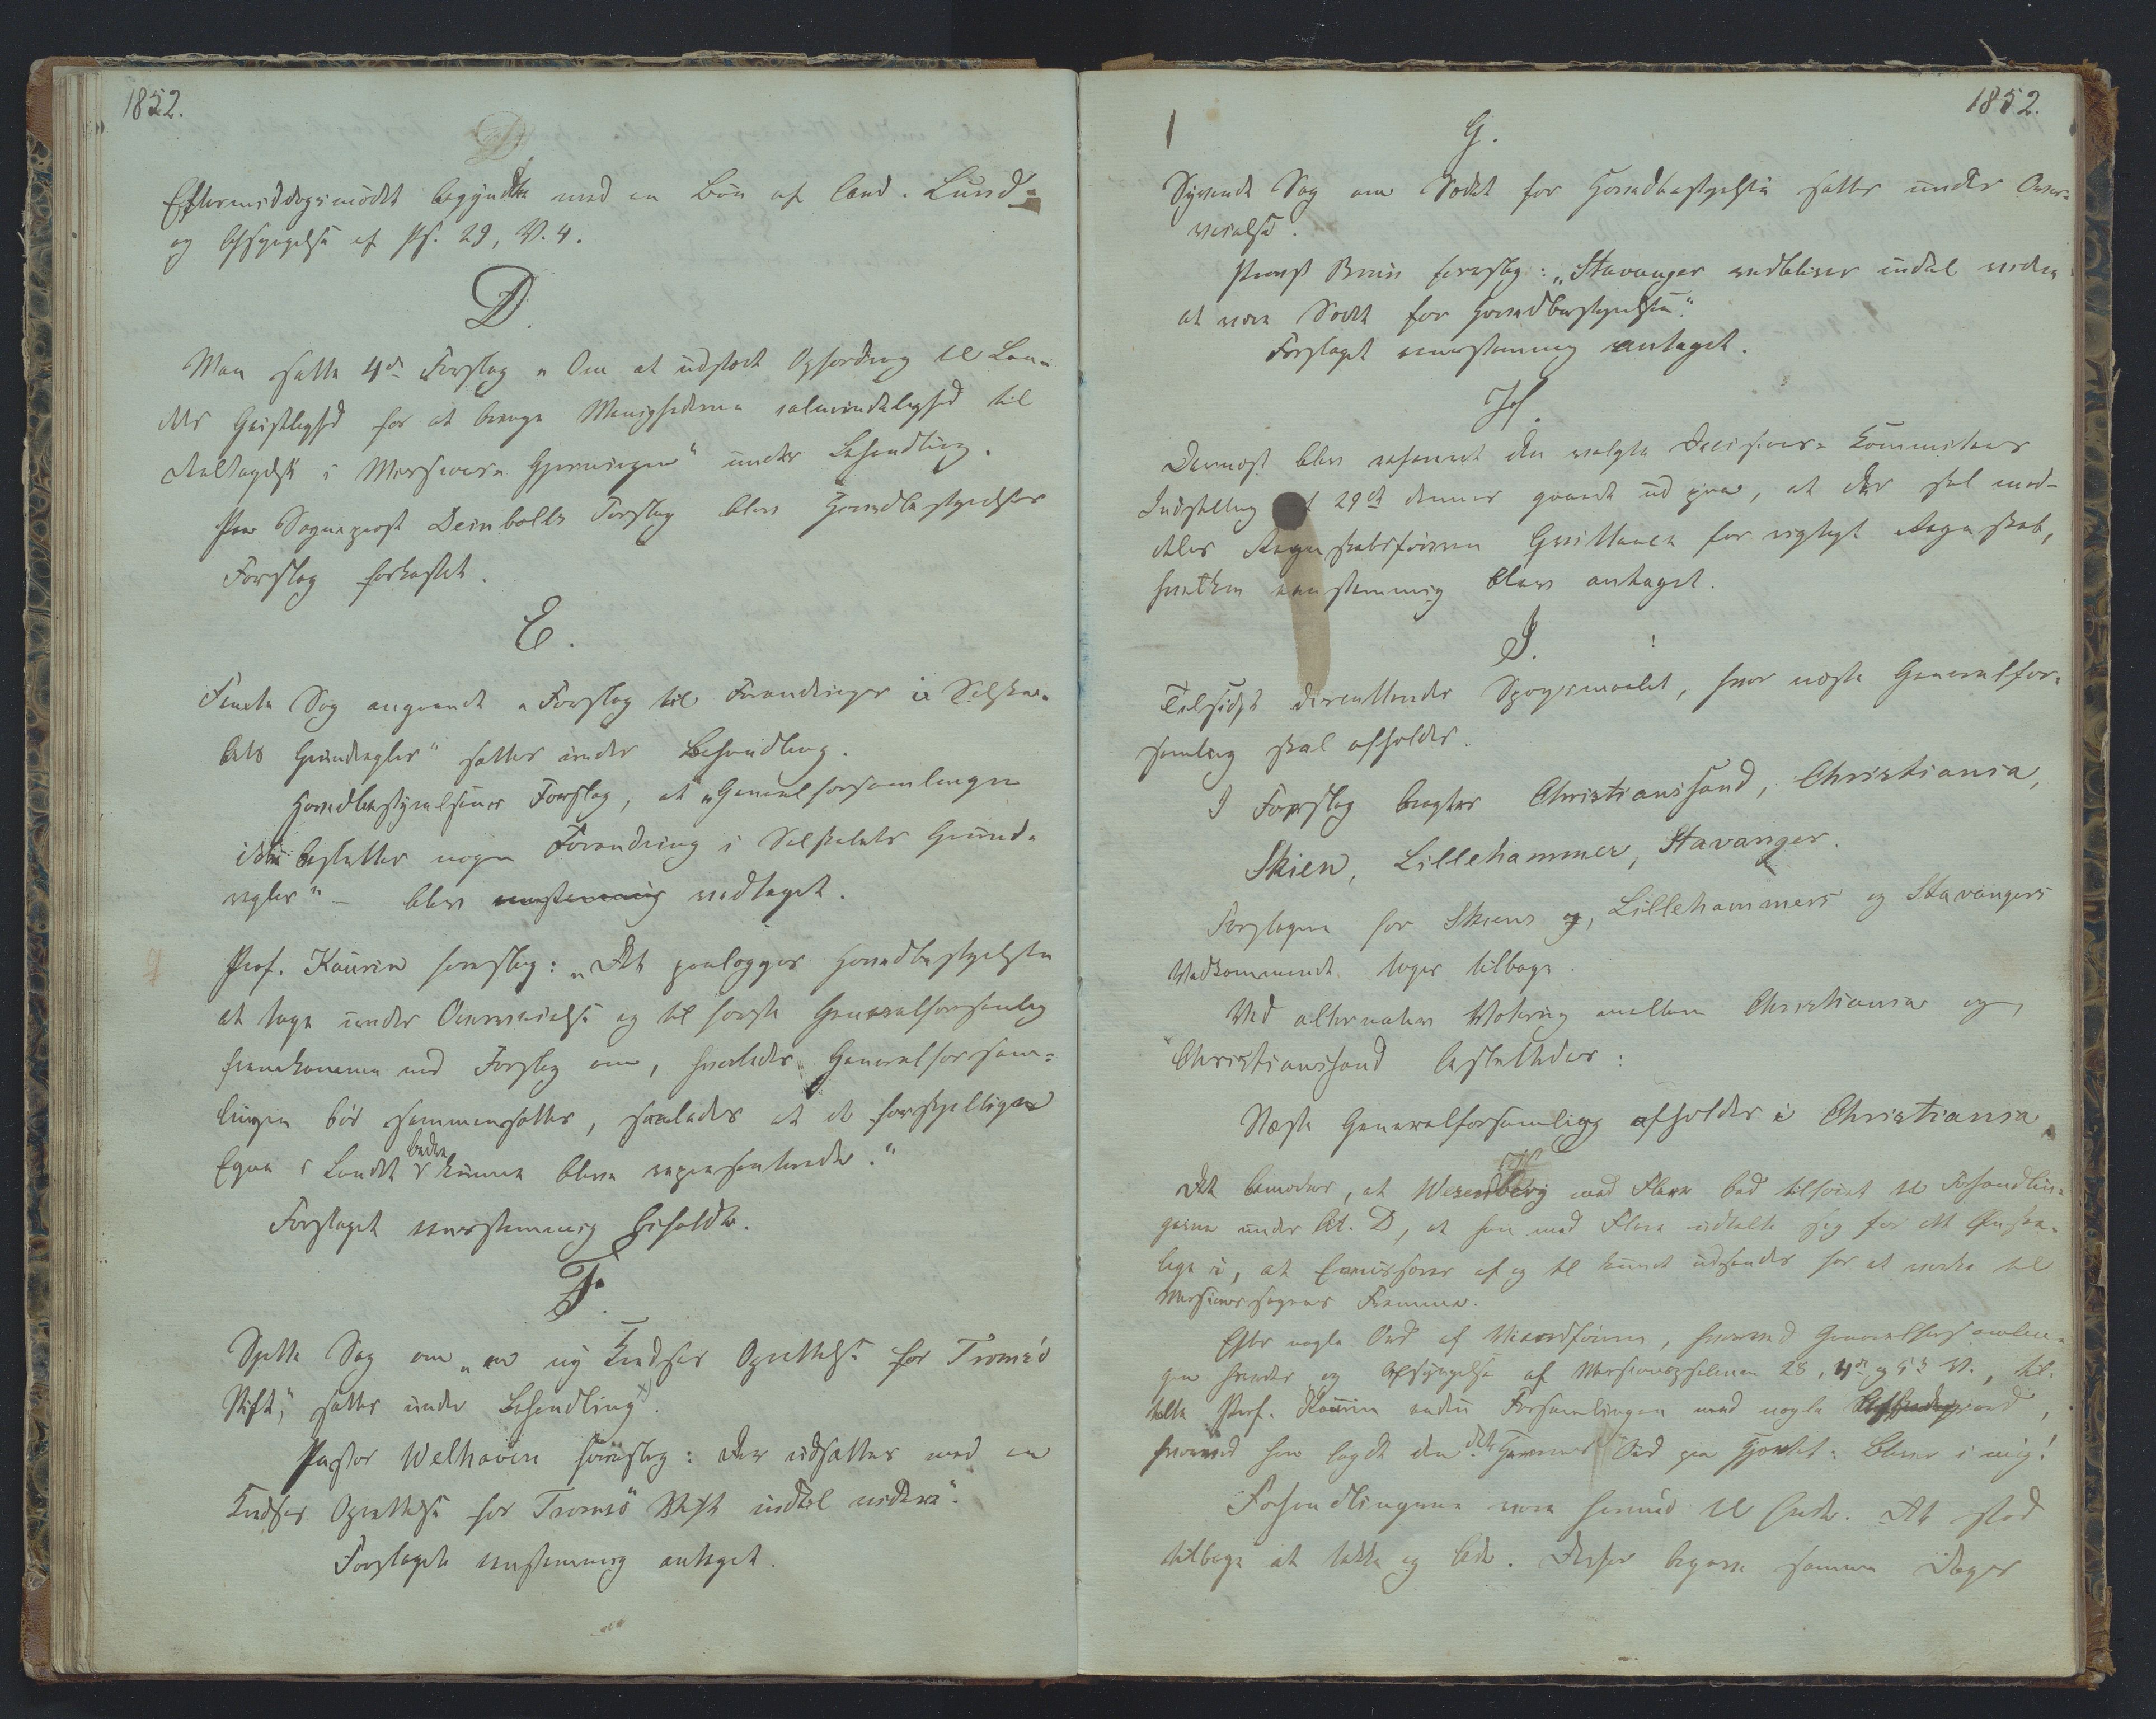 1852.
Eftermiddagsmödet begyndte med en Bön af Cand. Lund
og Afsyngelse af Ps. 29, V. 4.
D.
Man satte 4de Forslag "Om at udstæde Opfordring til Lan-
dets Geistlighed for at bringe Menighederne almindelighed til
Deeltagelse i Missions-Gjerningen" under Behandling.
Paa Sogneprest Deinbolls Forslag blev Hovedbestyrelsens
Forslag forkastet.
E.
Femte Sag angaaende "Forslag til Forandringer i Selska-
bets Grundregler" sattes under Behandling.
Hovedbestyrelsens Forslag, at "Generalforsamlingen
ikke beslutter nogen Forandring i Selskabets Grund-
regler" – blev eenstemmig vedtaget.
Prof. Kaurin foreslog: "Det paalægges Hovedbestyrelsen
at tage under Overveielse og til første Generalforsamling
fremkomme med Forslag om, hvorledes Generalforsam-
lingen bör sammensættes, saaledes at de forskjellige
Egne i Landet bedre kunne blive repræsenterede."
Forslaget eenstemmig bifaldt.
F.
Sjette Sag om "en ny Kredses Oprettelse for Tromsö
Stift," sattes under Behandling.
Pastor Welhaven foreslog: "Der udsættes med en
Kredses Oprettelse for Tromsö Stift indtil videre".
Forslaget eenstemmig antaget.
1852.
G.
Syvende Sag om Sædet for Hovedbestyrelsen sattes under Over-
veielse.
Provst Bruun foreslog: "Stavanger vedbliver indtil videre
at være Sædet for Hovedbestyrelsen".
Forslaget eenstemmig antaget.
H.
Dernæst blev refereret den valgte Decisions-Committees
Indstilling 29de dennes gaaende ud paa, at der skal med-
deles Regnskabsføreren Qvittance for rigtigt Regnskab,
hvilken eenstemmig blev antaget.
I.
Tilsidst Spørgsmaalet, hvor næste Generalfor-
samling skal afholdes.
I Forslag bragtes Christianssand, Christiania,
Skien, Lillehammer, Stavanger.
Forslagene for Skiens og, Lillehammers og Stavangers
Vedkommende toges tilbage.
Ved alternativ Votering mellem Christiania og
Christianssand besluttedes:
Næste Generalforsamling afholdes i Christiania
Det bemærkes, at Wexendberg med Flere bad tilføiet til Forhandlin-
gerne under Lit. D, at han med Flere udtalte sig for det Ønske-
lige i, at Emissærer af og til kunde udsendes for at virke til
Missionssagens Fremme.
Efter nogle Ord af Ordføreren, hvorved Generalforsamlin-
gen og Afsyngelse af Missionspsalmen 28, 4de og 5te V., til-
talte Prof. Kaurin endnu Forsamlingen med nogle Afskedsord,
hvorved han lagde den det Herrens Ord paa Hjertet: Bliver i mig!
Forhandlingerne vare hermed til Ende. Det stod
tilbage at takke og bede. Derfor begave samme Dags